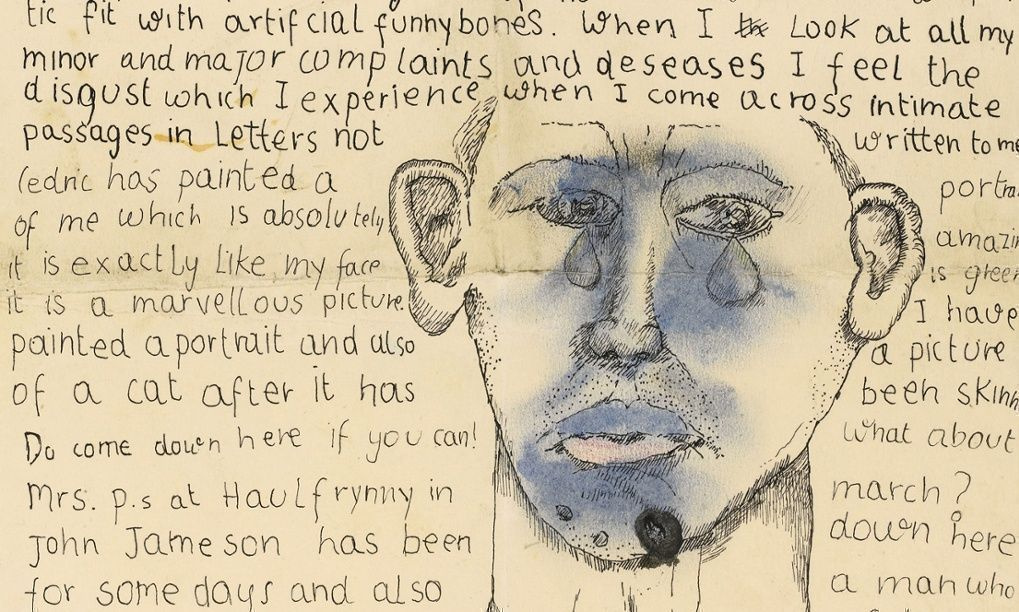 tic fit with artifcial funnybones. When I the Look at all my
minor and major complaints and deseases I feel the
disgust which I experience when I come across intimate
passages in Letters not written to me
Cedric has painted a portrai
of me which is absolutely amazin
it is exactly Like my face is green
it is a marvellous picture. I have
painted a portrait and also a picture
of a cat after it has been skinn
Do come down here if you can! what about
march?
Mrs. p.s at Haulfrynny in down here
John Jameson has been
for some days and also a man who